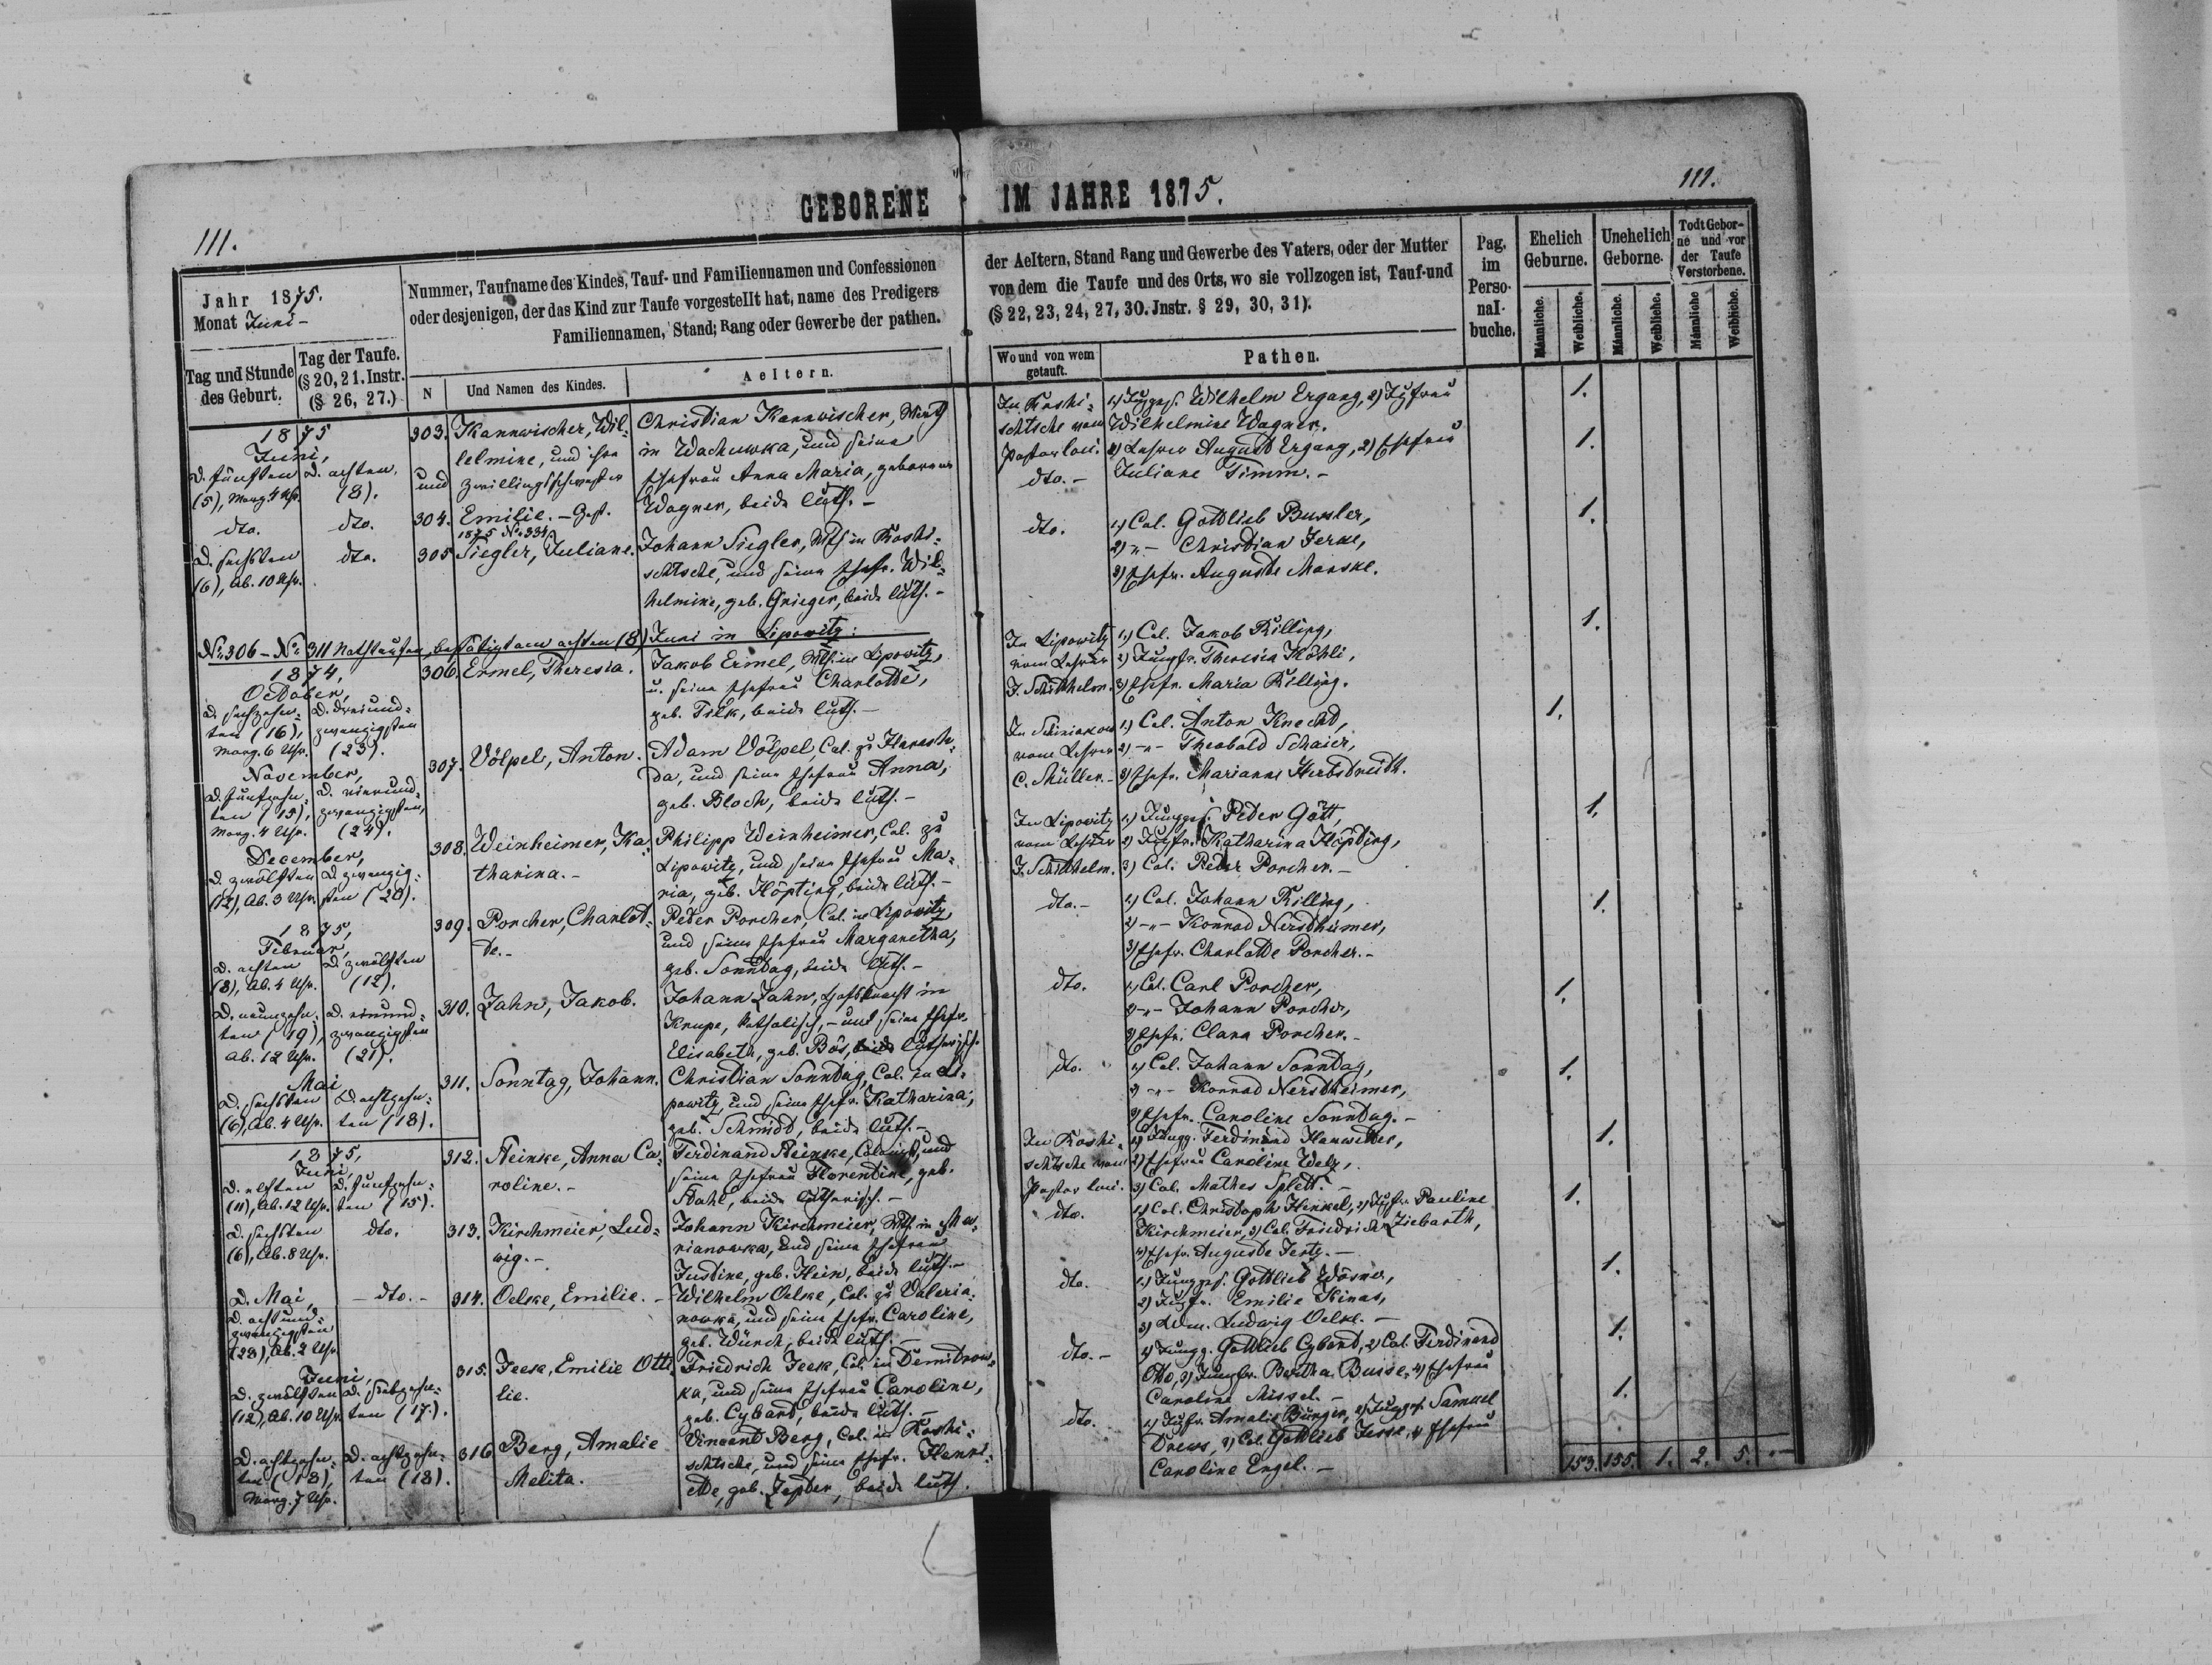 GEBORENE IM JAHRE 1875.
111.
111.
Jahr 1875.
Monat Juni -
Nummer, Taufname des Kindes, Tauf- und Familiennamen und Confessionen
oder desjenigen, der das Kind zur Taufe vorgestellt hat, name des Predigers
Familiennamen, Stand; Rang oder Gewerbe der pathen.
der Aeltern, Stand Rang und Gewerbe des Vaters, oder der Mutter
von dem die Taufe und des Orts, wo sie vollzogen ist, Tauf-und
(§ 22, 23, 24, 27, 30. Jnstr. § 29, 30, 31).
Pag. im Perso- nal- buche.
Ehelich Geburne.
Unehelich Geborne.
Todt Gebor- ne und vor der Taufe Verstorbene.
Männliche. Weibliche. Männliche. Weibliche. Männliche Weibliche.
Tag und Stunde des Geburt.
Tag der Taufe. (§ 20, 21. Instr. (§ 26, 27.)
N
Und Namen des Kindes.
Aeltern.
Wo und von wem getauft.
Pathen.
1875
Juni,
D. fünften (5), Morg. 4 Uhr.
D. achten (8).
303. Kannwischer, Wil-
helmine, und ihre
und Zwillingsschwester
Christian Kannwischer, Wirth
in Wachuwka, und seine
Ehefrau Anna Maria, geborene
Wagner, beide luth. -
In Roshi-
schtsche vom
Pastor loci.
1) Junggs. Wilhelm Ergang, 2) Jgfrau
Wilhelmine Wagner.
1.
dto. dto. 304. Emilie. - Gest.
1875 No 334.
dto. -
1) Lehrer August Ergang, 2) Ehefrau
Juliane Timm. -
1.
D. sechsten (6), Ab. 10 Uhr.
dto.
305 Siegler, Juliane.
Johann Siegler, Wth in Roshi-
schtsche, und seine Ehefr. Wil-
helmine, geb. Grieger, beide luth. -
dto.
1) Col. Gottlieb Bussler,
2) -"- Christian Jerke,
3) Ehefr. Auguste Manske.
1.
No 306 - No 311 Nothtaufen, bestätigt am achten (8) Juni in Lipowitz:
1874,
October,
D. sechzehn-
ten (16),
Morg. 6 Uhr.
D. dreiund-
zwanzigsten
(23).
306. Ermel, Theresia.
Jakob Ermel, Wth. in Lipowitz,
u. seine Ehefrau Charlotte,
geb. Filk, beide luth. -
In Lipowitz
vom Lehrer
J. Schillhelm.
1) Col. Jakob Rilling,
2) Jungfr. Theresia Köhli,
3) Ehefr. Maria Rilling.
1.
November,
D. fünfzehn-
ten (15),
Morg. 4 Uhr.
D. vierund-
zwanzigsten,
(24).
307. Völpel, Anton.
Adam Völpel, Col. zu Harash-
da, und seine Ehefrau Anna,
geb. Bloch, beide luth. -
vom Lehrer
C. Müller. -
1) Col. Anton Knecht,
2) -"- Theobald Schaier,
3) Ehefr. Marianne Herbstreith.
1.
December,
D. zwölften
(12), Ab. 3 Uhr.
D. zwanzig-
sten (20).
308. Weinheimer, Ka-
tharina. -
Philipp Weinheimer, Col. zu
Lipowitz, und seine Ehefrau Ma-
ria, geb. Höpting, beide luth. -
In Lipowitz
vom Lehrer
J. Schillhelm.
1) Junggs. Peter Gött,
2) Jgfr. Katharina Höpting,
3) Col. Peter Porcher. -
1.
1875,
Februar,
D. achten
(8), Ab. 4 Uhr.
D. zwölften
(12).
309. Porcher, Charlot-
te. -
Peter Porcher, Col. in Lipowitz,
und seine Ehefrau Margaretha,
geb. Sonntag, beide luth. -
dto. -
1) Col. Johann Rilling,
2) -"- Konrad Nerstheimer,
3) Ehefr. Charlotte Porcher. -
1.
D. neunzehn-
ten (19),
Ab. 12 Uhr.
D. einund-
zwanzigsten
(21).
310. Jahn, Jakob.
Johann Jahn, Hofsknecht in
Krupe, katholisch, - und seine Ehefr.
Elisabeth, geb. Bös, beide lutherisch.
dto.
1) Col. Carl Porcher,
2) -"- Johann Porcher,
3) Ehefr. Clara Porcher. -
1.
Mai
D. sechsten
(6), Ab. 4 Uhr.
D. achtzehn-
ten (18).
311. Sonntag, Johann.
Christian Sonntag, Col. in Li-
powitz, und seine Ehefr. Katharina,
geb. Schmidt, beide luth. -
dto.
1) Col. Johann Sonntag,
2) -"- Konrad Nerstheimer,
3) Ehefr. Caroline Sonntag. -
1.
1875,
Juni,
D. elften
(11), Ab. 12 Uhr.
D. fünfzehn-
ten (15).
312. Reinke, Anna Ca-
roline. -
Ferdinand Reinke, Colonist, und
seine Ehefrau Florentine, geb.
Stahl, beide lutherisch. -
In Roshi-
schtsche vom
Pastor loci.
1) Jungg. Ferdinand
2) Ehefrau Caroline Welz,
3) Col. Mathes Splett. -
1.
D. sechsten
(6), Ab. 8 Uhr.
dto.
313. Kirchmeier, Lud-
wig. -
Johann Kirchmeier, Wth. in Ma-
rianowka, und seine Ehefrau
Justine, geb. Hein, beide luth. -
dto.
1) Col. Christoph Henkel, 2) Jgfr. Pauline
Kirchmeier, 3) Col. Friedrich Ziebarth,
4) Ehefr. Auguste -
1.
D. Mai,
D. achtund-
zwanzigsten
(28), Ab. 2 Uhr.
- dto. -
314. Oelke, Emilie. -
Wilhelm Oelke, Col. zu Valeria-
nowka, und seine Ehefr. Caroline,
geb. Würch, beide luth. -
dto.
1) Junggs. Gottlieb
2) Jgfr. Emilie Kinas,
3) Ludwig Oelke. -
1.
Juni,
D. zwölften
(12), Ab. 10 Uhr.
D. siebzehn-
ten (17).
315. Jeek, Emilie Otti-
lie.
Friedrich Jeek, Col. in Demitrow-
ka, und seine Ehefrau Caroline,
geb. Cybart, beide luth. -
dto. -
1) Jungg. Gottlieb Cybart, 2) Col. Ferdinand
Otto, 3) Jungfr. Bertha Busse, 4) Ehefrau
Caroline Missel. -
1.
D. achtzehn-
ten (18),
Morg. 7 Uhr.
D. achtzehn-
ten (18).
316 Berg, Amalie
Melita.
Vincent Berg, Col. in Roshi-
schtsche, und seine Ehefr. Henri-
ette, geb. beide luth.
dto.
1) Jgfr. Amalie Bürger, 2) Junggs. Samuel
Drews, 3) Col. Gottlieb Jesse, 4) Ehefrau
Caroline Engel. -
1.
153. 155. 1. 2. 5. -